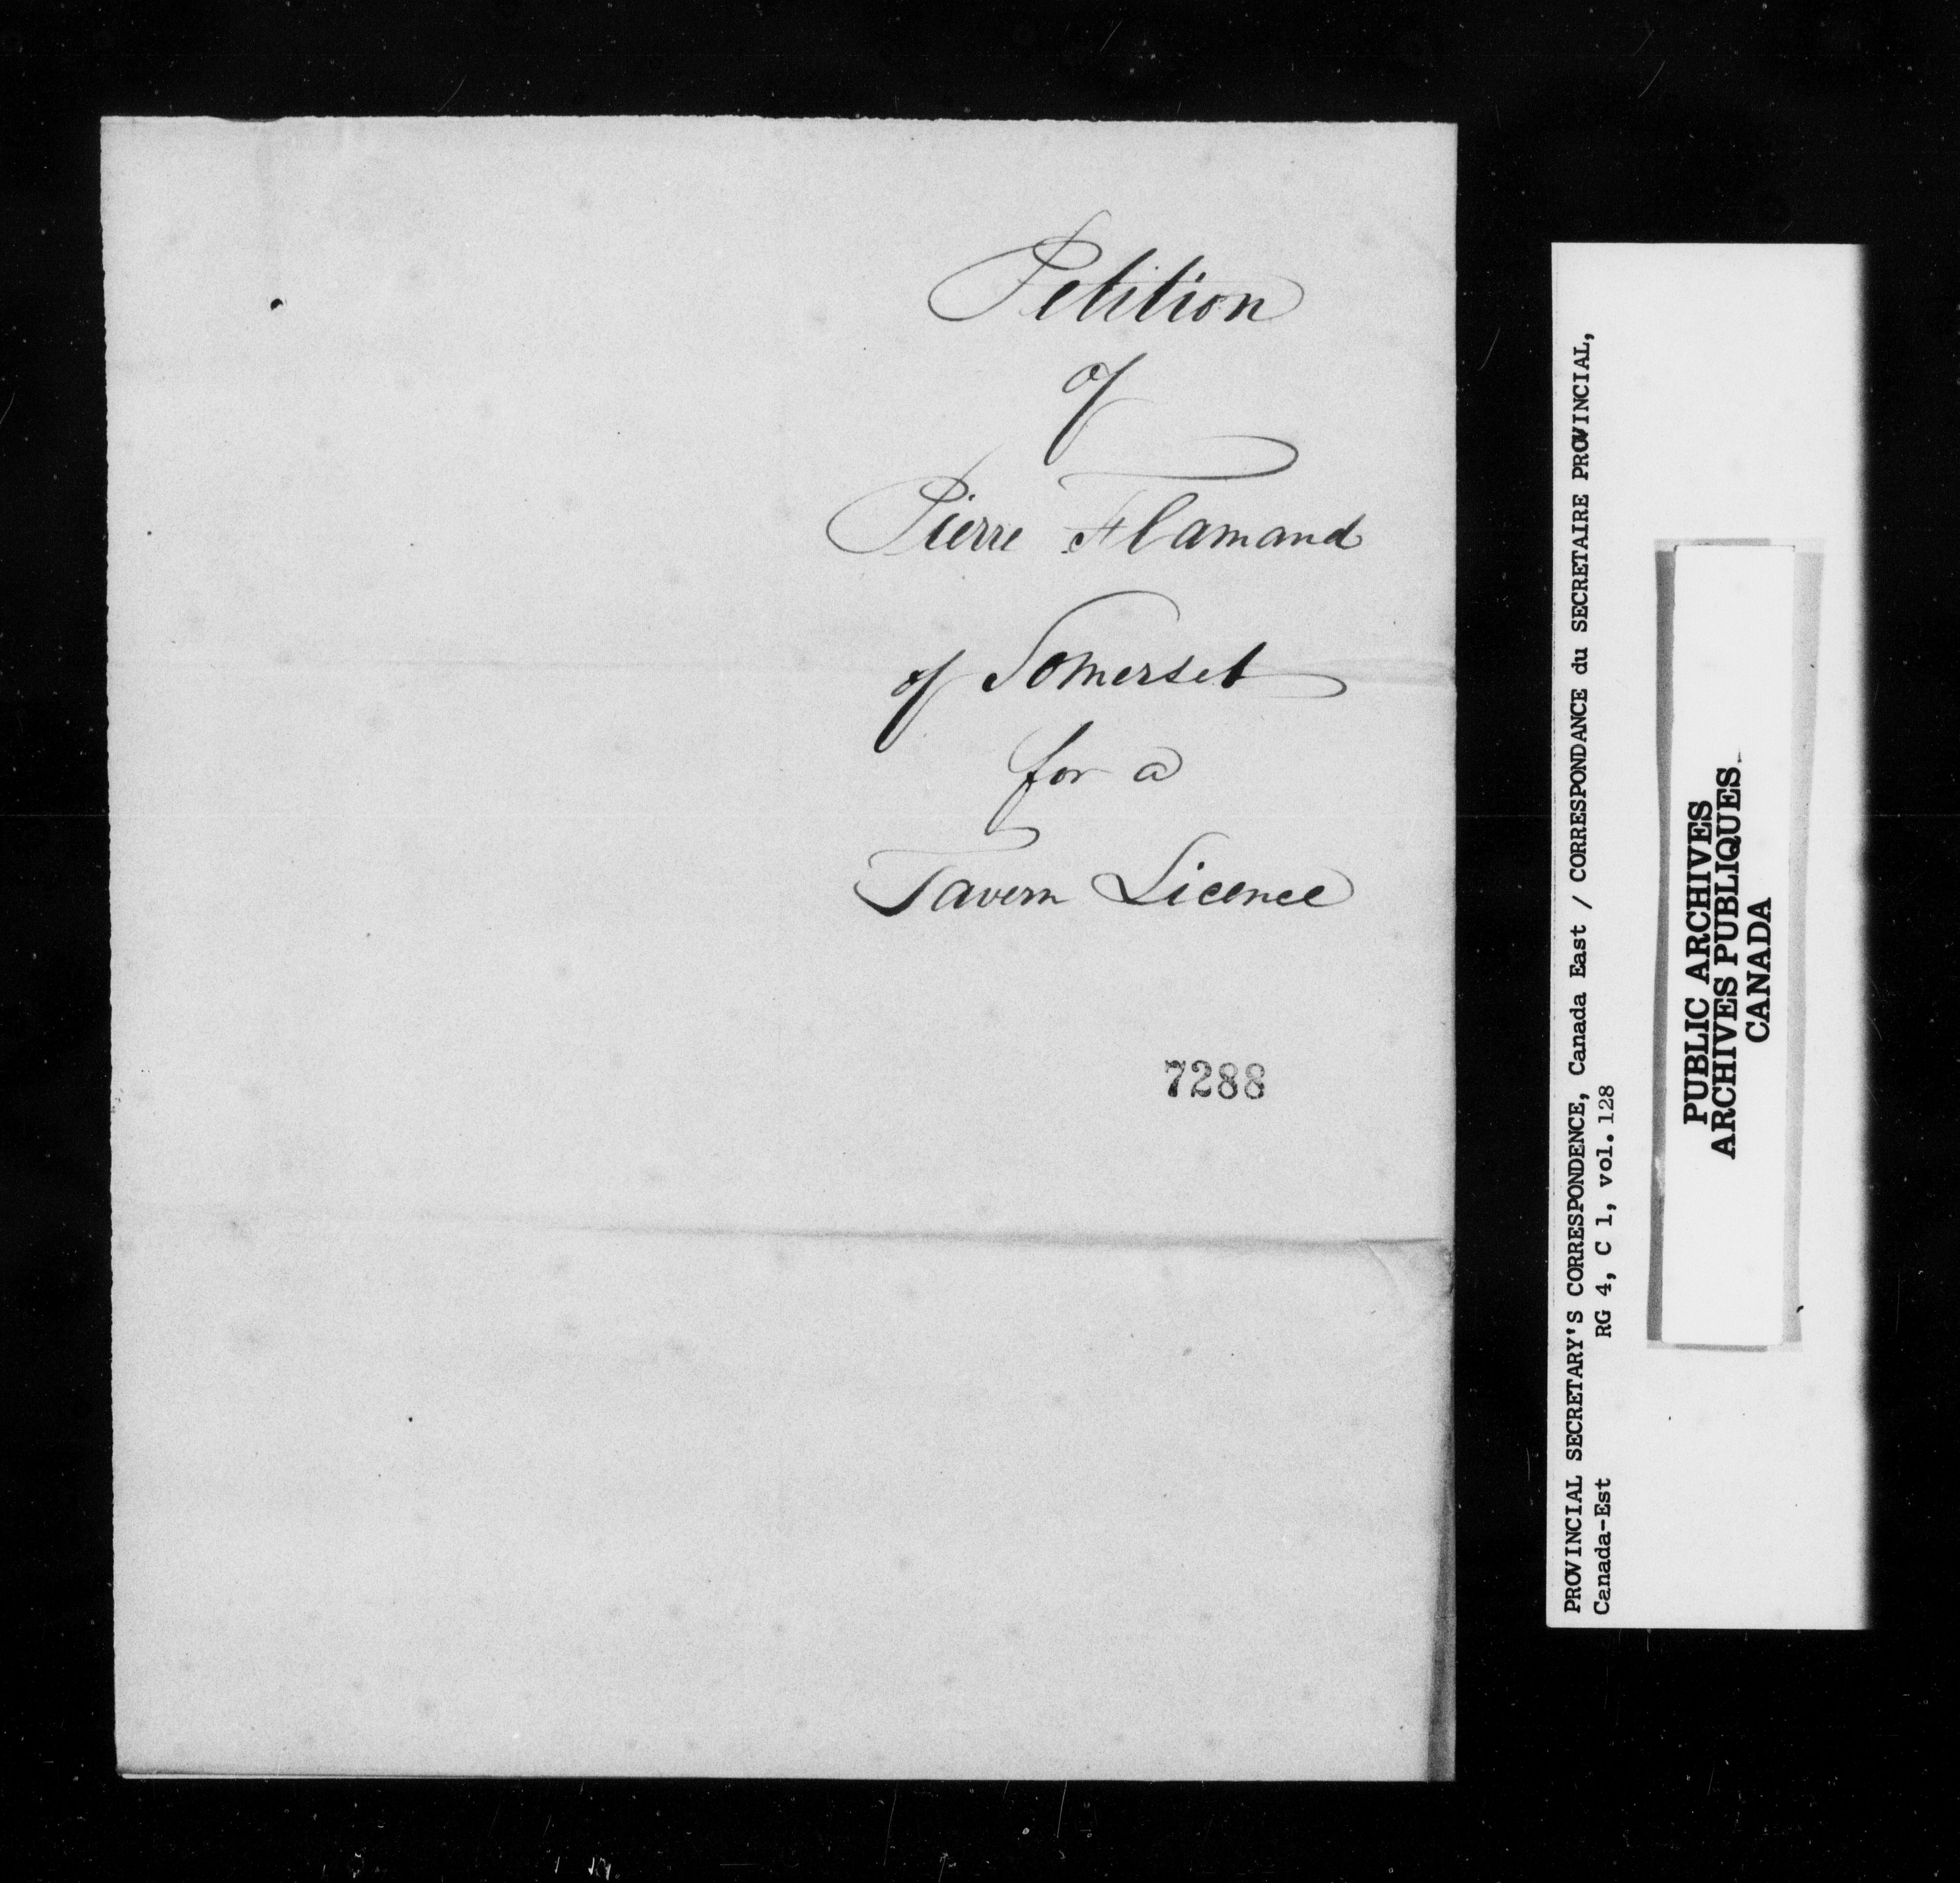 Petition
of
Pierre Flamand
of Somerset
for a
Tavern Licence
7288
PROVINCIAL SECRETARY'S CORRESPONDENCE, Canada East / CORRESPONDANCE du SECRETAIRE PROVINCIAL,
Canada-Est RG 4, C 1, vol. 128
PUBLIC ARCHIVES
ARCHIVES PUBLIQUES
CANADA